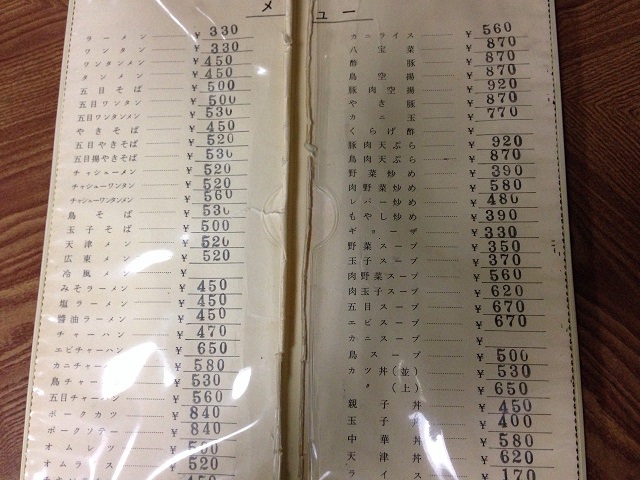 メニュー
ラーメン ¥330
ワンタン ¥330
ワンタンメン ¥450
タンメン ¥450
五目そば ¥500
五目ワンタン ¥500
五目ワンタンメン ¥530
やきそば ¥450
五目やきそば ¥520
五目揚やきそば ¥530
チャシューメン ¥520
チャシューワンタン ¥520
チャシューワンタンメン ¥560
鳥そば ¥530
玉子そば ¥500
天津メン ¥520
広東メン ¥520
冷風メン ¥
みそラーメン ¥450
塩ラーメン ¥450
醤油ラーメン ¥450
チャーハン ¥470
エビチャーハン ¥650
カニチャーハン ¥580
鳥チャーハン ¥530
五目チャーハン ¥560
ポークカツ ¥840
ポークソテー ¥840
オムレツ ¥500
オムライス ¥520
カニライス ¥560
八宝菜 ¥870
酢豚 ¥870
鳥空揚 ¥870
豚肉空揚 ¥920
やき豚 ¥870
カニ玉 ¥770
くらげ酢 ¥
豚肉天ぷら ¥920
鳥肉天ぷら ¥870
野菜炒め ¥390
肉野菜炒め ¥580
レバー炒め ¥480
もやし炒め ¥390
ギョーザ ¥330
野菜スープ ¥350
玉子スープ ¥370
肉野菜スープ ¥560
肉玉子スープ ¥620
五目スープ ¥670
エビスープ ¥670
カニスープ ¥
鳥スープ ¥500
カツ丼(並) ¥530
〃(上) ¥650
親子丼 ¥450
玉子丼 ¥400
中華丼 ¥580
天津丼 ¥620
ライス ¥170